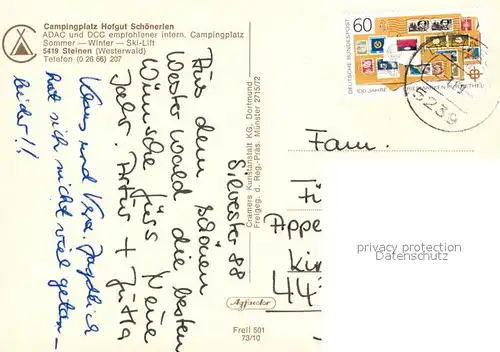 Campingplatz Hofgut Schönerlen
ADAC und DCC empfohlener intern. Campingplatz
Sommer — Winter — Ski-Lift
5419 Steinen (Westerwald)
Telefon (0 26 66) 207
Silvester 88
Aus dem schönen
Westerwald die besten
Wünsche fürs Neue
Jahr. Artur + Jutta
Klaus und Vera. Jagdlich
hat sich nicht viel getan –
leider!!
Cramers Kunstanstalt KG, Dortmund
Freigeg. d. Reg.-Präs. Münster 2715/72
Agfacolor
Freil 501
73/10
60
DEUTSCHE BUNDESPOST
100 JAHRE BRIEFMARKEN IN BETHEL
5239
Fam.
Appe
44
privacy protection